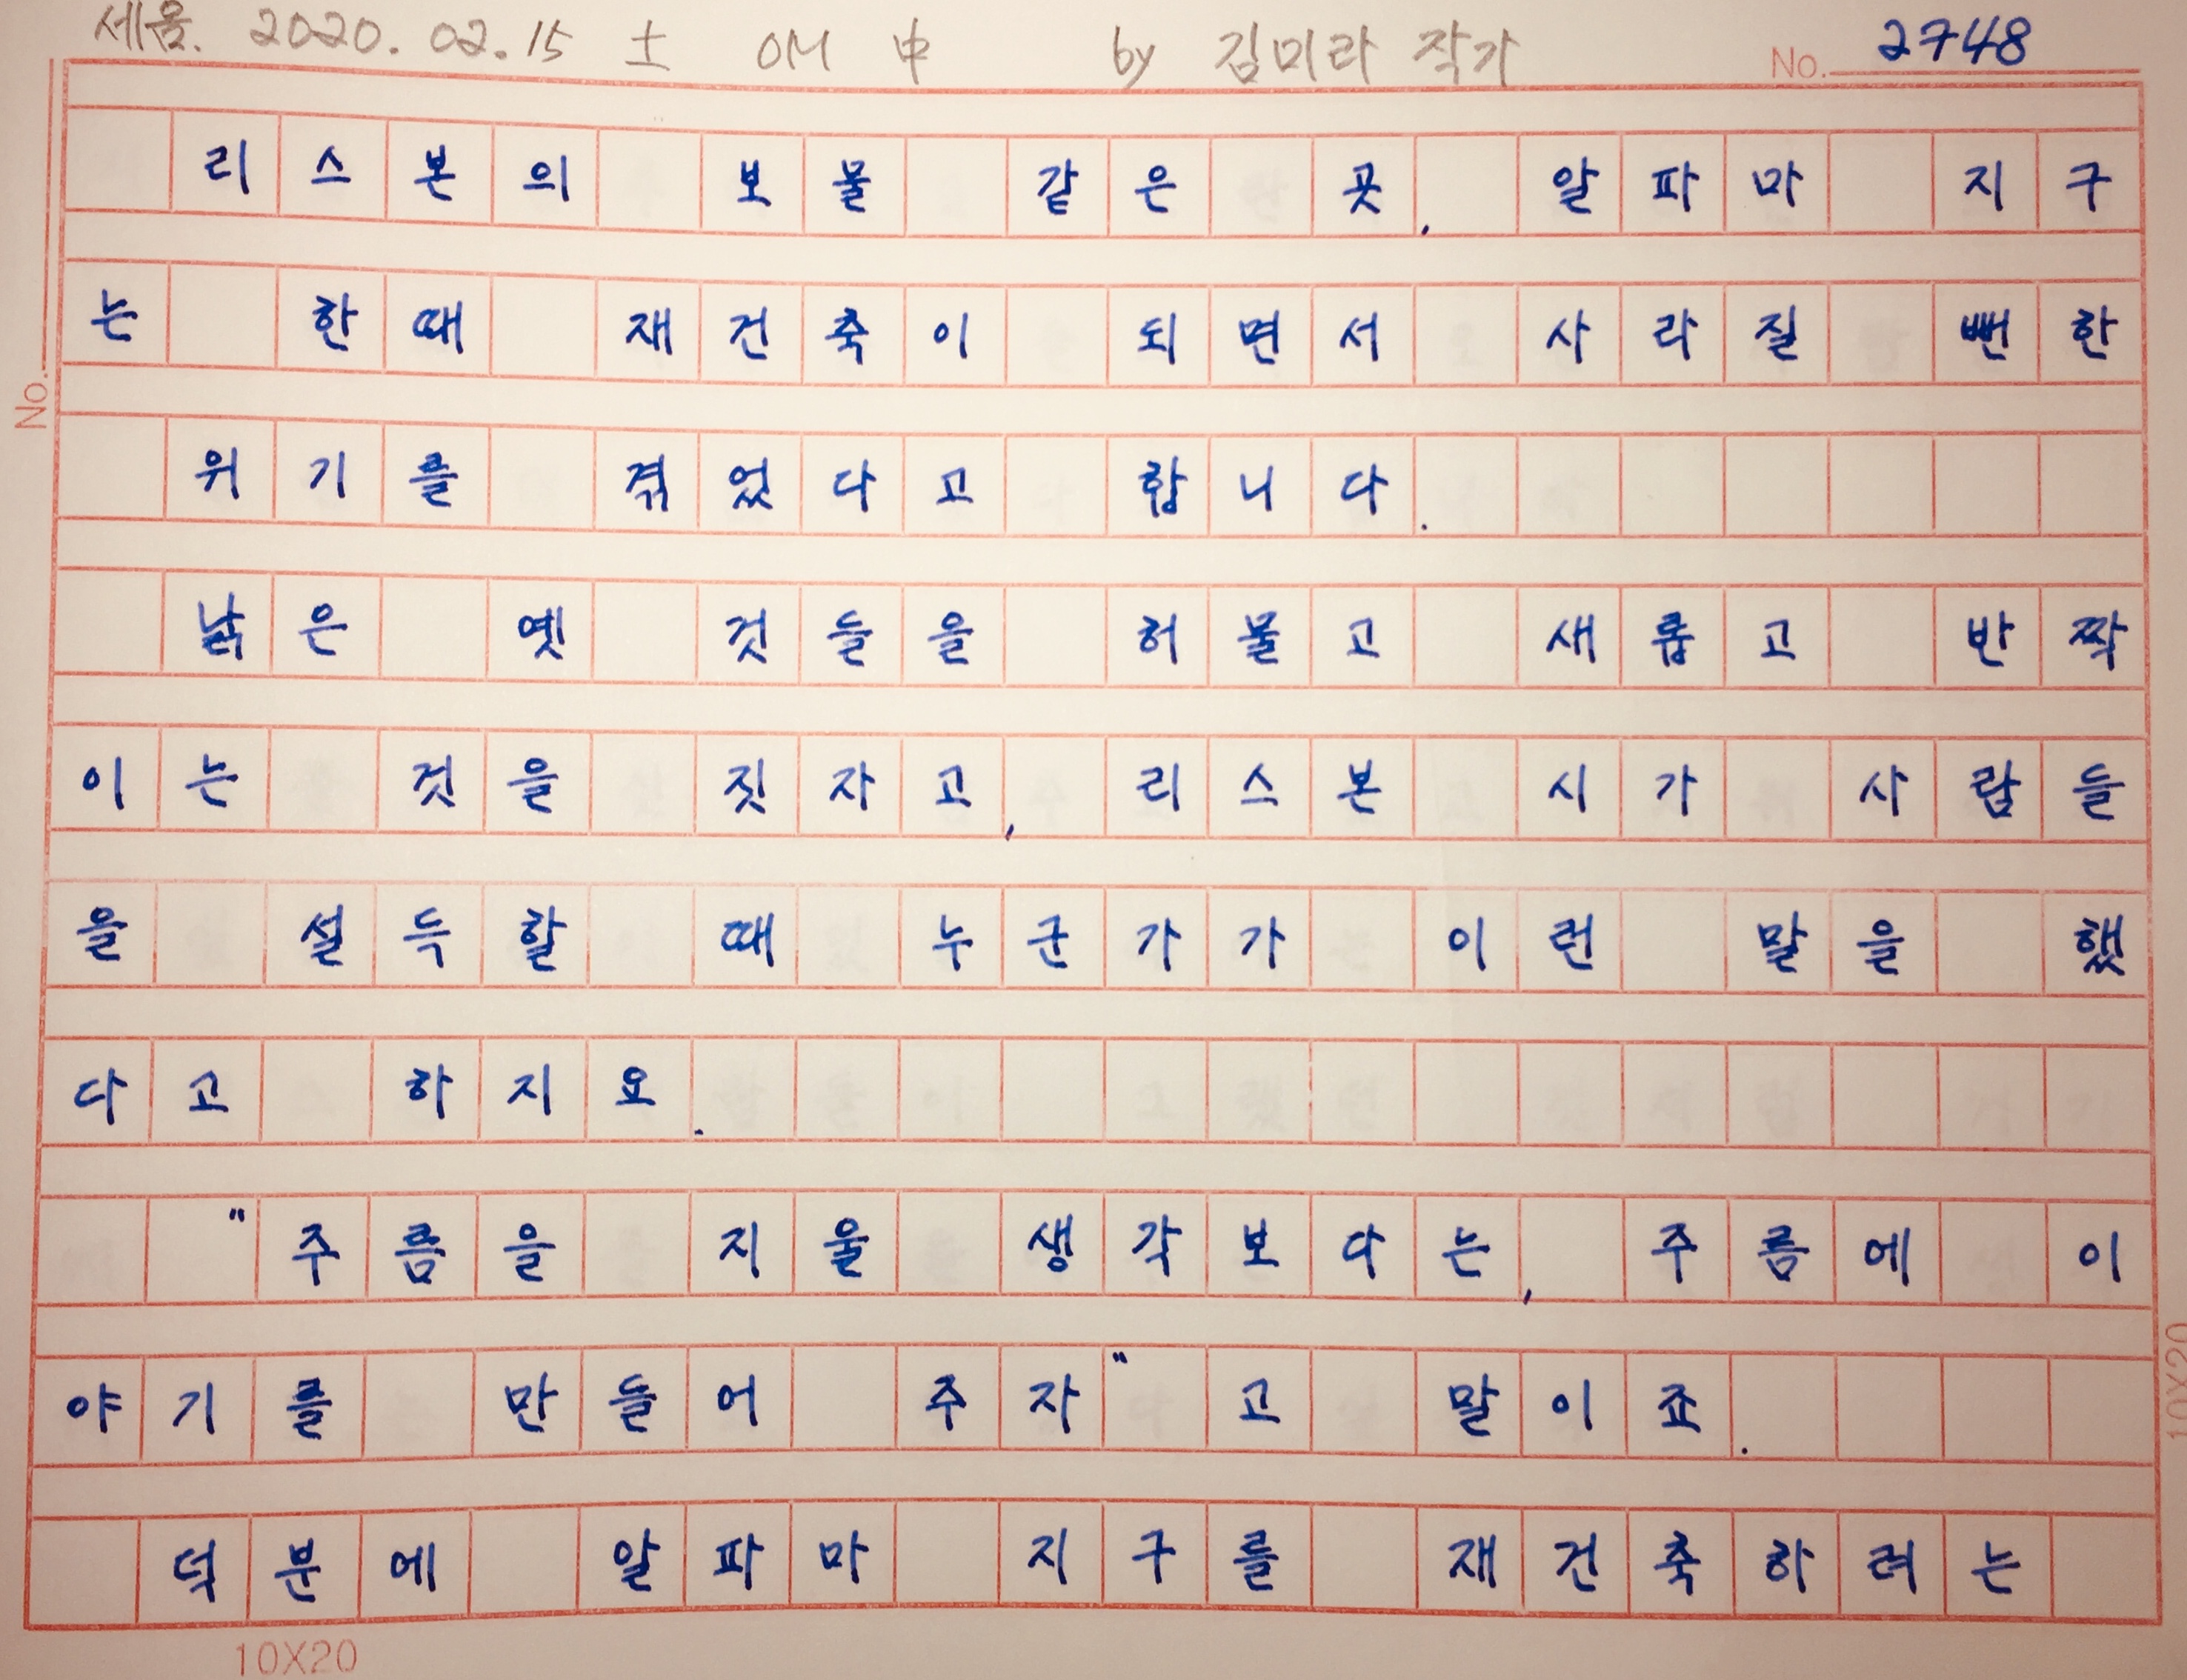 세음. 2020. 02. 15 土 OM 中 by 김미라 작가 No. 2748
리스본의 보물 같은 곳, 알파마 지구
는 한때 재건축이 되면서 사라질 뻔한
위기를 겪었다고 합니다.
낡은 옛 것들을 허물고 새롭고 반짝
이는 것을 짓자고, 리스본 시가 사람들
을 설득할 때 누군가가 이런 말을 했
다고 하지요.
"주름을 지울 생각보다는, 주름에 이
야기를 만들어 주자"고 말이죠.
덕분에 알파마 지구를 재건축하려는
No.
10X20
10X20